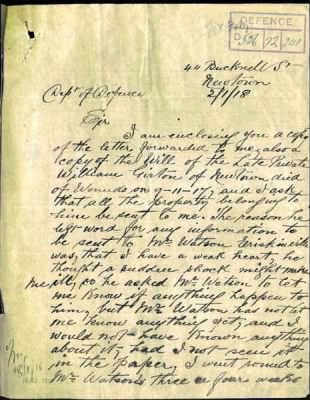 DEFENCE
44 Bucknell St
Newtown
2/1/18
Dept of Defence
Sir
I am enclosing you a copy
of the letter forwarded to me, also a
copy of the Will of the Late Private
William Girton of Newtown died
of Wounds on 9-11-17, and I ask
that all the property belonging to
him be sent to me. The reason he
left word for any information to
be sent to Mrs Watson Erskinville
was, that I have a weak heart, he
thought a sudden shock might make
me ill, so he asked Mrs Watson to let
me know if anything happen to
him, but Mrs Watson has not let
me know anything yet, and I
would not have known anything
about it, had I not seen it
in the paper, I went round to
Mrs Watson's three or four weeks